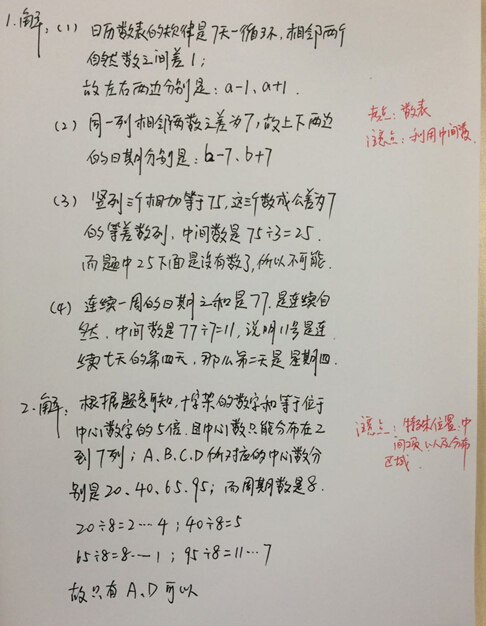 1.解:(1) 日历数表的规律是7天一循环,相邻两个
自然数之间差1;
故左右两边分别是:a-1、a+1.
(2) 同一列相邻两数之差为7,故上下两边
的日期分别是:b-7、b+7
考点:数表
注意点:利用中间数.
(3) 竖列三个相加等于75,这三个数成公差为7
的等差数列,中间数是75÷3=25.
而题中25下面是没有数了,所以不可能.
(4) 连续一周的日期之和是77.是连续自
然.中间数是77÷7=11,说明11号是连
续七天的第四天,那么第一天是星期四.
2.解:根据题意可知,十字架的数字和等于位于
中心数字的5倍.且中心数只能分布在2
到7列;A、B、C、D所对应的中心数分
别是20、40、65、95;而周期数是8.
注意点:特殊位置.中
间项以及分布
区域.
20÷8=2…4;40÷8=5
65÷8=8…1;95÷8=11…7
故只有A、D可以